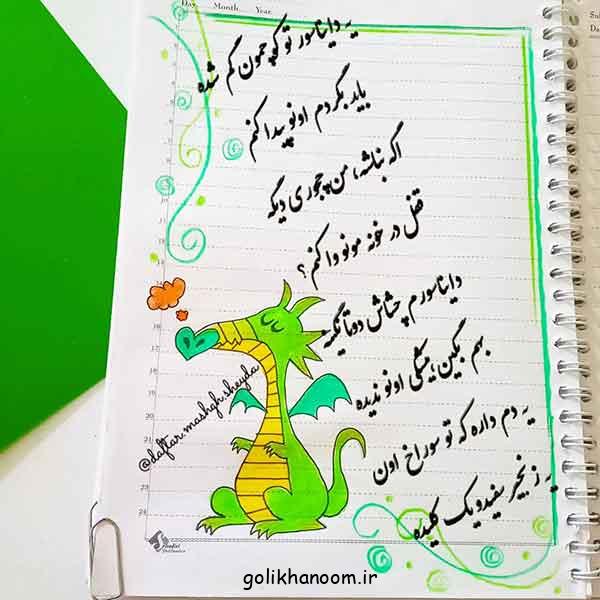 Day. Month. Year.
یه دایناسور تو کوچمون گم شده
باید بگردم اونو پیدا کنم
اگه نباشه، من چجوری دیگه
قفل در خونه مونو وا کنم؟
دایناسورم چشاش دوتا نگینه
بهم بگین، هیشکی اونو ندیده
یه دم داره که تو سوراخ اون
یه زنجیر سفید و یک کلیده
@daftar.mashgh.sheyda
golikhanoom.ir